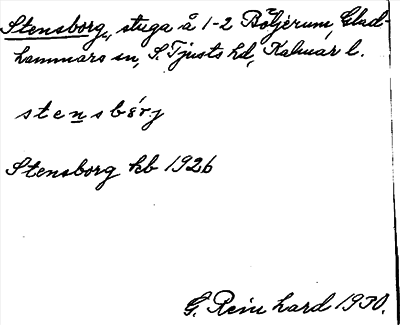 Stensborg, stuga å 1-2 Böljerum, Glad-
hammars sn, S. Tjusts hd, Kalmar l.
stensbörj
Stensborg kb 1926
G. Reinhard 1930.